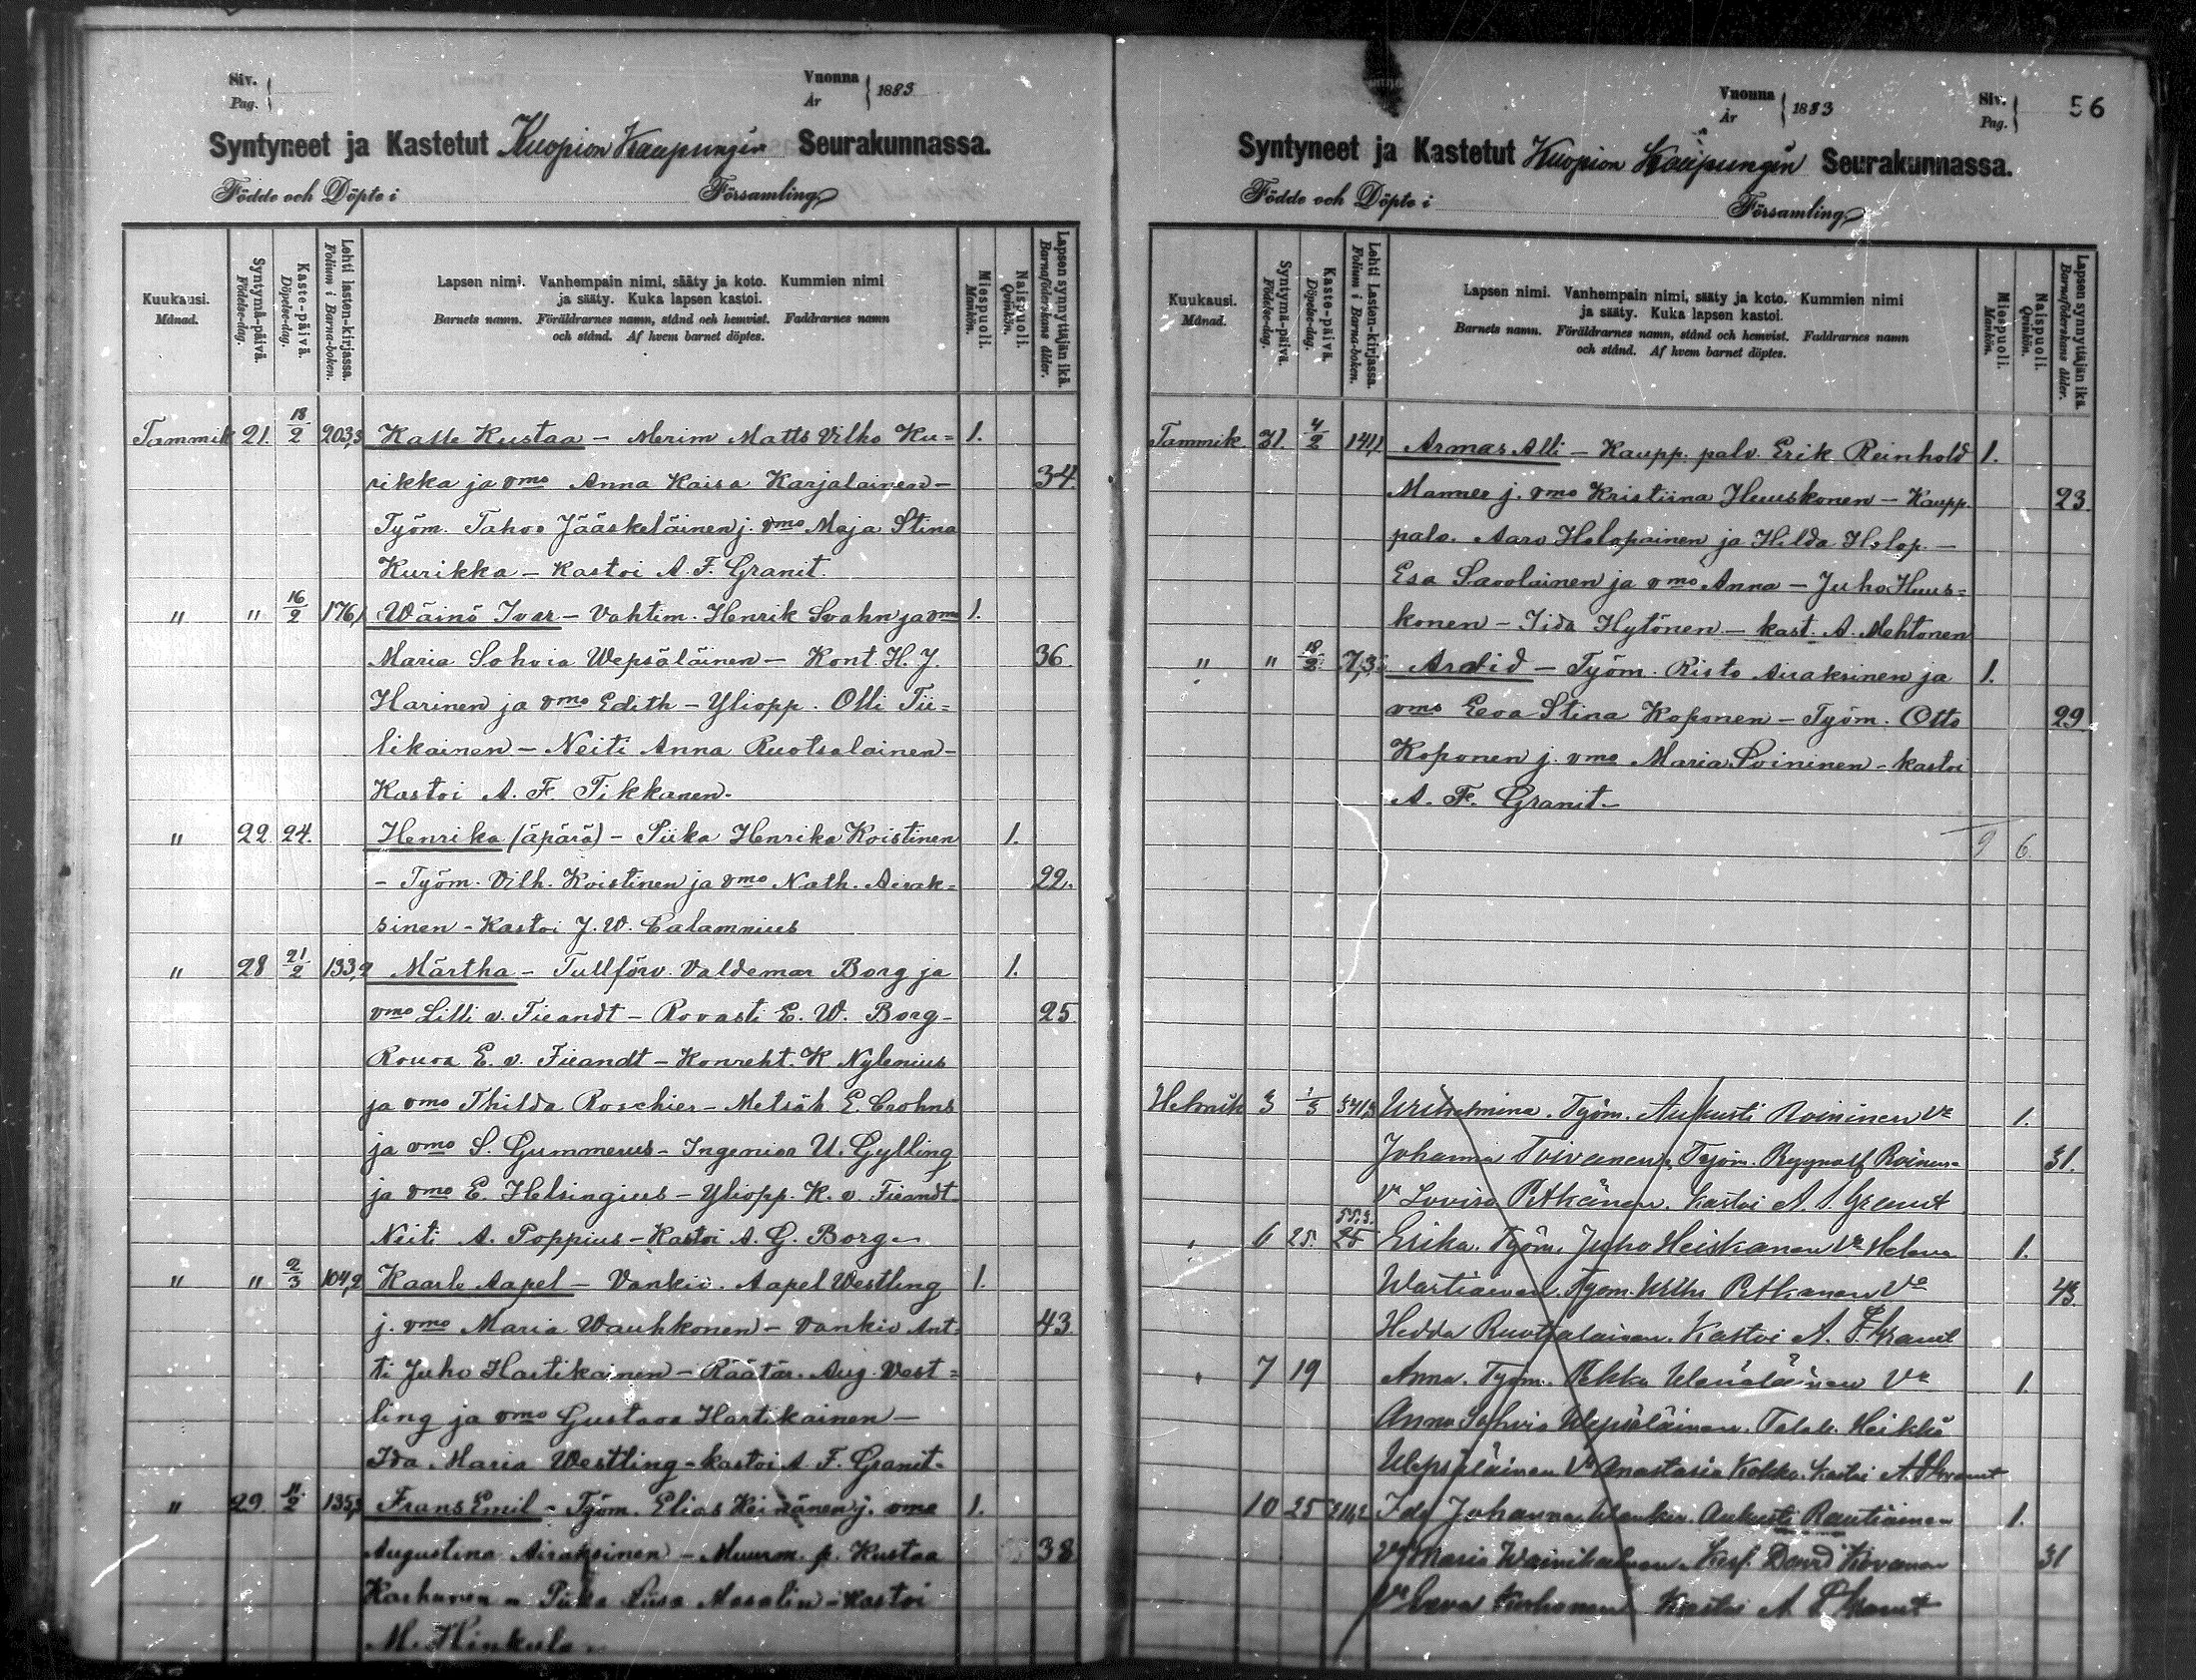 Siv. Pag. Vuonna År 1883
Syntyneet ja Kastetut Kuopion Kaupungin Seurakunnassa.
Födde och Döpte i Församling
Kuukausi. Månad.
Syntymä-päivä. Födelse-dag.
Kaste-päivä. Döpelse-dag.
Lehti lasten-kirjassa. Folium i Barna-boken.
Lapsen nimi. Vanhempain nimi, sääty ja koto. Kummien nimi
ja sääty. Kuka lapsen kastoi.
Barnets namn. Föräldrarnes namn, stånd och hemvist. Faddrarnes namn
och stånd. Af hvem barnet döptes.
Miespuoli. Mankön.
Naispuoli. Qvinkön.
Lapsen synnyttäjän ikä. Barnaföderskans ålder.
Tammik 21. 18/2 203,3 Kalle Kustaa – Merim Matts Vilho Ku= 1.
rikka ja vmo Anna Kaisa Karjalainen – 34.
Työm. Tahvo Jääskeläinen j. vmo Maja Stina
Kurikka – Kastoi A. F. Granit.
" " 16/2 176,1 Wäinö Ivar – Vahtim. Henrik Svahn ja vmo 1.
Maria Sohvia Wepsäläinen – Kont. H. J. 36.
Harinen ja vmo Edith – Yliopp. Olli Tii=
likainen – Neiti Anna Ruotsalainen –
Kastoi A. F. Tikkanen.
" 22. 24. Henrika (äpärä) – Piika Henrika Koistinen 1.
– Työm. Vilh. Koistinen ja vmo Nath. Airak= 22.
sinen – Kastoi J. W. Calamnius
" 28 21/2 133,2 Märtha – Tullförv. Valdemar Borg ja 1.
vmo Lilli v. Fieandt – Rovasti E. W. Borg – 25.
Rouva E. v. Fieandt – Konreht. K. Nylenius
ja vmo Thilda Roschier – Metsäh. E. Crohns
ja vmo S. Gummerus – Ingeniör U. Gylling
ja vmo E. Helsingius – Yliopp. K. v. Fieandt
Neiti A. Poppius – Kastoi A. G. Borg –
" " 2/3 104,2 Kaarle Aapel – Vankiv. Aapel Westling 1.
j. vmo Maria Wauhkonen – Vankiv Ant= 43.
ti Juho Hartikainen – Räätär. Aug. West=
ling ja vmo Gustava Hartikainen –
Ida Maria Westling – kastoi A. F. Granit –
" 29. 11/2 135,3 Frans Emil – Työm. Elias Heinänen j. vmo 1.
Augustina Airaksinen – Muurm. p. Kustaa 38
Karhunen Piika Liisa Asalin – Kastoi
M. Kinkula
Vuonna År 1883 Siv. Pag. 56
Syntyneet ja Kastetut Kuopion Kaupungin Seurakunnassa.
Födde och Döpte i Församling
Kuukausi. Månad.
Syntymä-päivä. Födelse-dag.
Kaste-päivä. Döpelse-dag.
Lehti Lasten-kirjassa. Folium i Barna-boken.
Lapsen nimi. Vanhempain nimi, sääty ja koto. Kummien nimi
ja sääty. Kuka lapsen kastoi.
Barnets namn. Föräldrarnes namn, stånd och hemvist. Faddrarnes namn
och stånd. Af hvem barnet döptes.
Miespuoli. Mankön.
Naispuoli. Qvinkön.
Lapsen synnyttäjän ikä. Barnaföderskans ålder.
Tammik. 31. 4/2 141,1 Armas Alli – Kaupp. palv. Erik Reinhold 1.
Manner j. vmo Kristiina Huuskonen – Kaupp. 23.
palv. Aaro Holopainen ja Hilda Holop. –
Esa Savolainen ja vmo Anna – Juho Huus=
konen – Iida Hytönen – kast. A. Mehtonen
" " 18/2 7,3 Arvid – Työm. Risto Airaksinen ja 1.
vmo Eeva Stina Koponen – Työm. Otto 29.
Koponen j. vmo Maria Soininen – kastoi
A. F. Granit –
9 6.
Helmik 3 1/3 341,3 Wilhelmina. Työm. Aukusti Roininen Va 1.
Johanna Toivanen. Työm. Roininen 31.
Va Lovisa Pitkänen. Kastoi A. F. Granit
" 6 25. 25 Erika. Työm. Juho Heiskanen Va Helena 1.
Wartiainen. Työm. Wilh. Pitkanen Va 43.
Hedda Ruotsalainen. Kastoi A. F. Granit
" 7 19 Anna. Työm. Pekka Wenäläinen Va 1.
Anna Sohvia Wepsäläinen. Talol. Heikki
Wepsäläinen Va Anastasia Kokko. Kastoi A F Granit
10 25 Ida Johanna. Aukusti Rautiainen 1.
Va Maria Wainikainen. David Kovanen 31
Va Eeva Karhonen Kastoi A F Granit